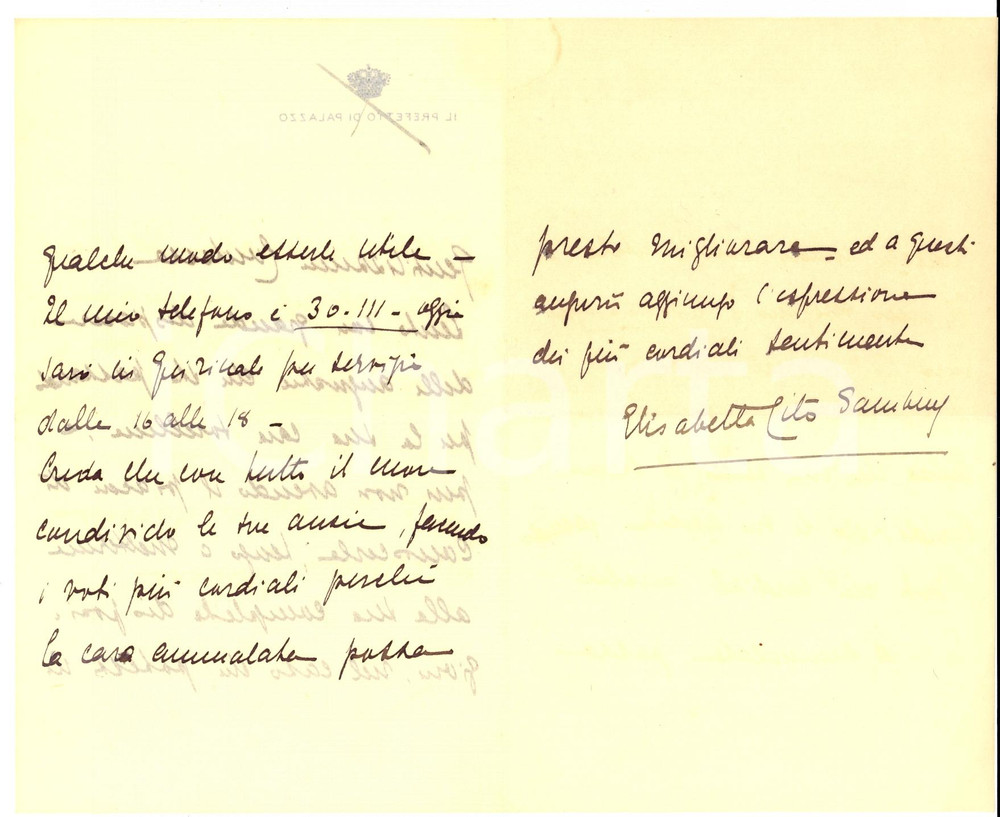 IL PREFETTO DI PALAZZO
qualche modo esserle utile —
Il mio telefono è 30-111 - oggi
sarò in Quirinale per servizio
dalle 16 alle 18 —
Creda che con tutto il cuore
condivido le sue ansie, facendo
i voti più cordiali perché
la cara ammalata possa
presto migliorare — ed a questi
auguri aggiungo l'espressione
dei più cordiali sentimenti
Elisabetta Cito